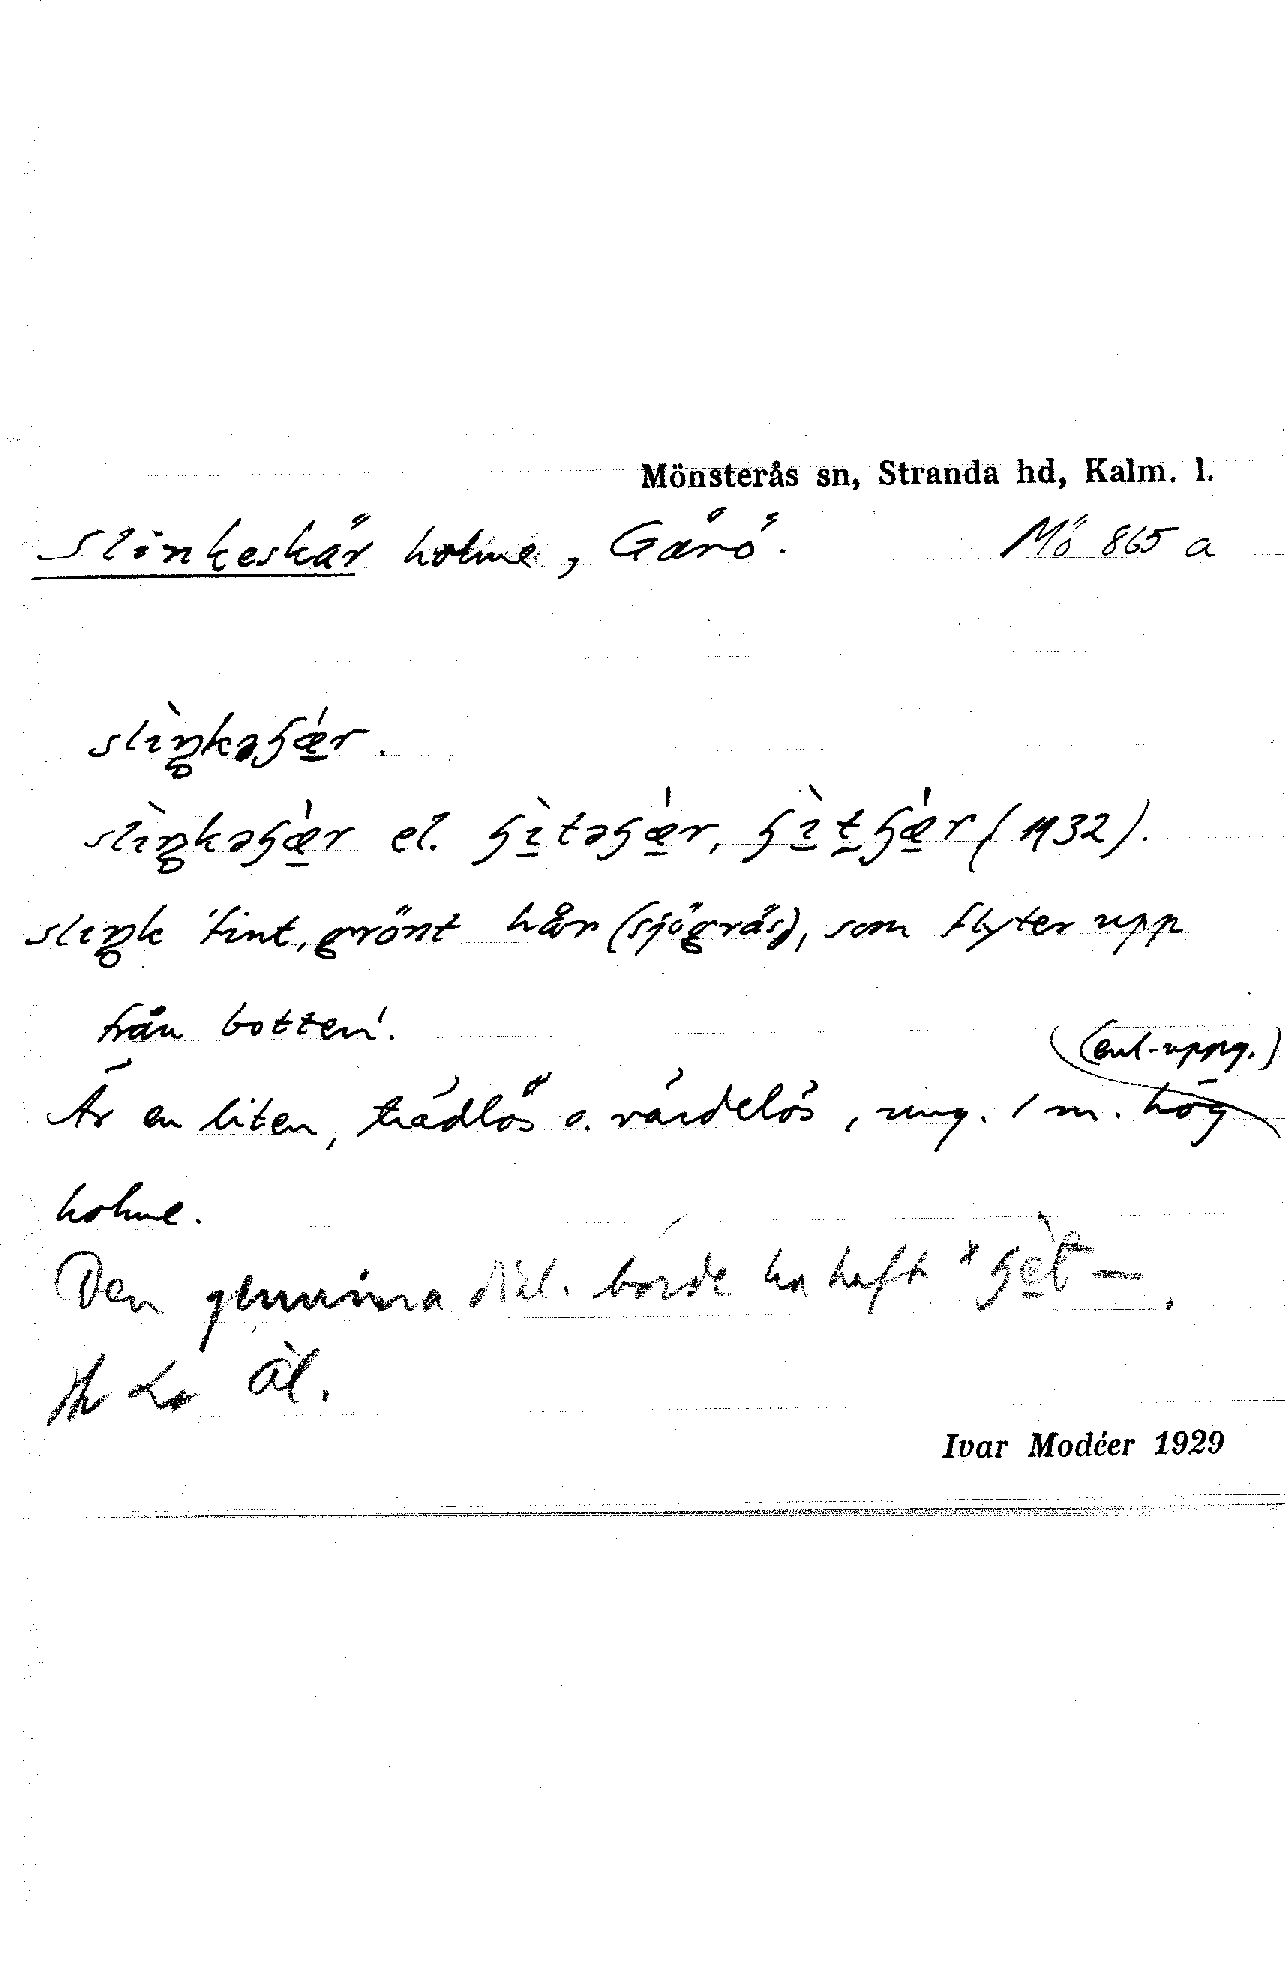 Mönsterås sn, Stranda hd, Kalm. l.
Slinkeskär holme, Gårö. Mö 865 a
slìŋkəʃǽr.
slìŋkəʃǽr el. ʃìtəʃǽr, ʃìtʃǽr (1932).
sliŋk 'fint, grönt hår (sjögräs), som flyter upp
från botten'.
(enl. uppg.)
Är en liten, trädlös o. värdelös, ung. 1 m. hög
holme.
Den genuina dial. borde ha haft *ʃèt–.
Äl.
Ivar Modéer 1929